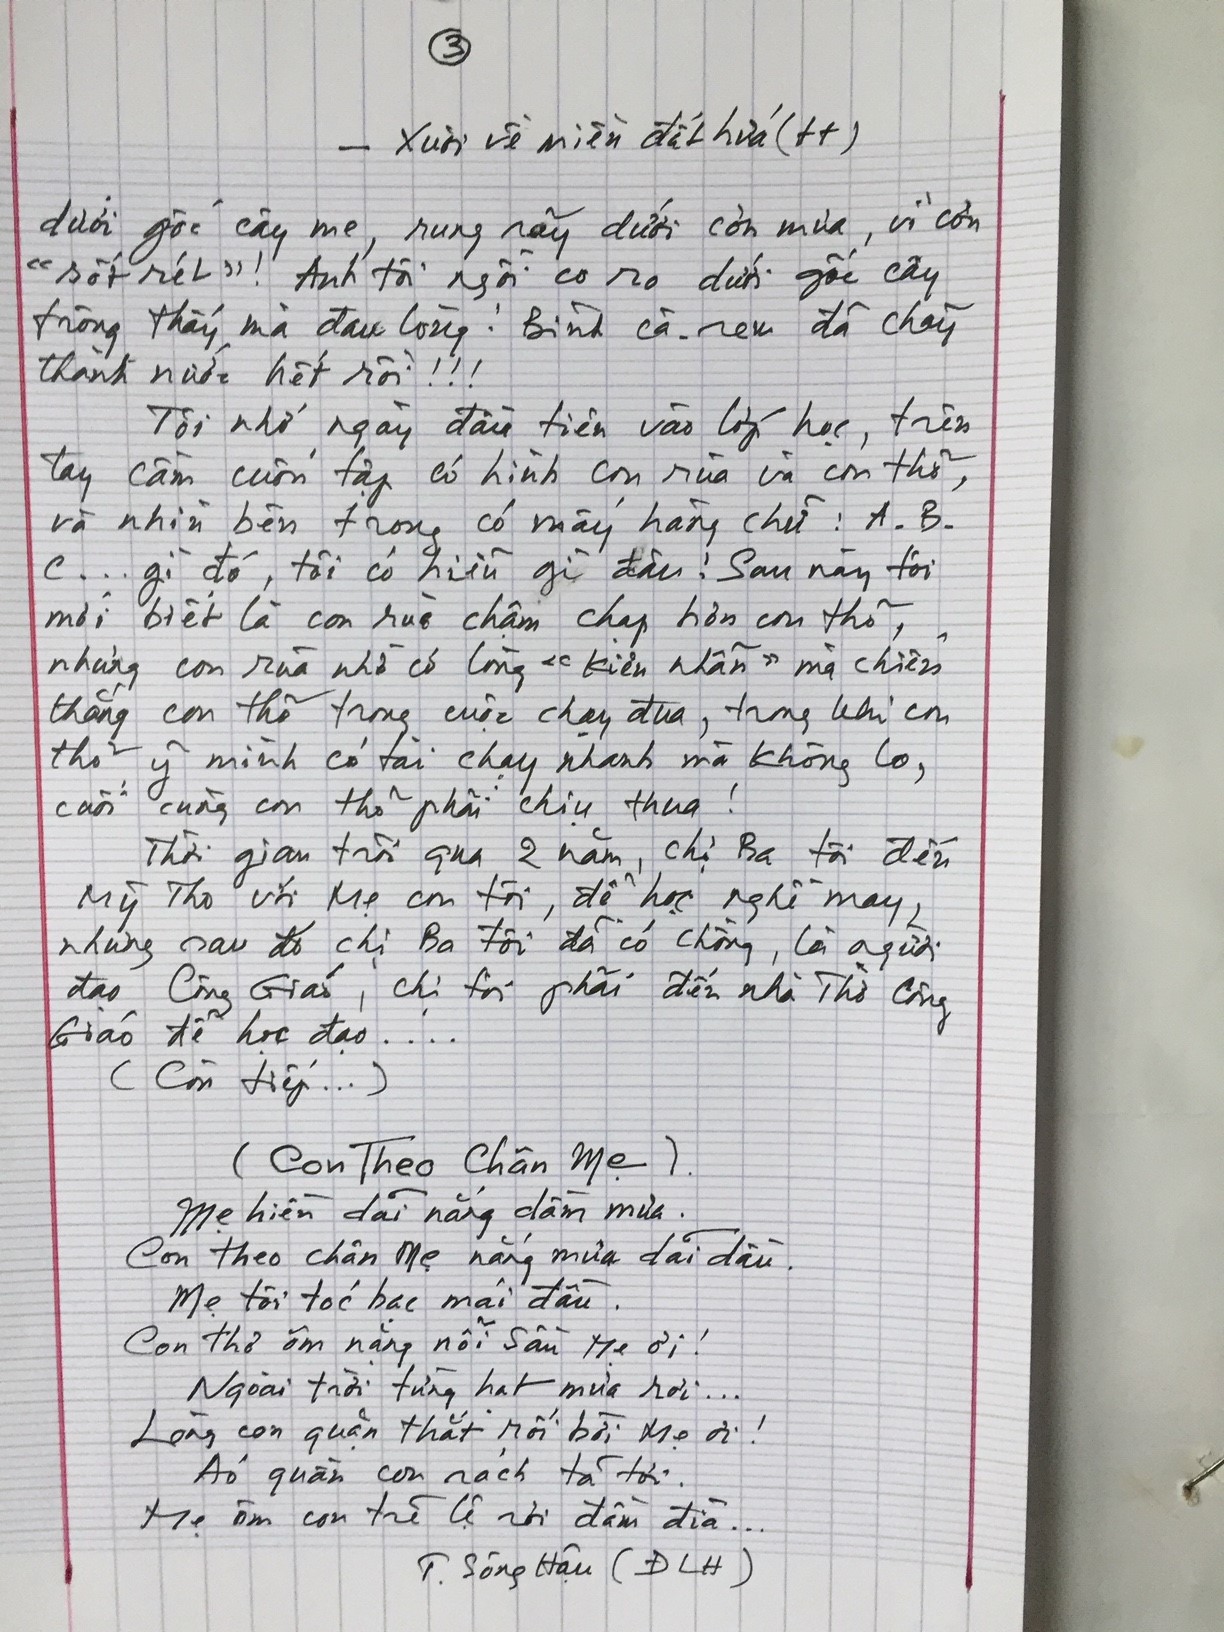 3
— Xuôi về miền đất hứa (tt)
dưới gốc cây me, rung rẫy dưới cơn mưa, vì cơn
"sốt rét"! Anh tôi ngồi co ro dưới gốc cây
trông thấy mà đau lòng! Bình cà-rem đã chãy
thành nước hết rồi!!!
Tôi nhớ ngày đầu tiên vào lớp học, trên
tay cầm cuốn tập có hình con rùa và con thỏ,
và nhìn bên trong có mấy hàng chữ: A-B-
C... gì đó, tôi có hiểu gì đâu! Sau này tôi
mới biết là con rùa chậm chạp hơn con thỏ,
nhưng con rùa nhờ có lòng "kiên nhẫn" mà chiến
thắng con thỏ trong cuộc chạy đua, trong khi con
thỏ ỷ mình có tài chạy nhanh mà không lo,
cuối cùng con thỏ phải chịu thua!
Thời gian trôi qua 2 năm, chị Ba tôi đến
Mỹ Tho với Mẹ con tôi, để học nghề may,
nhưng sau đó chị Ba tôi đã có chồng, là người
đạo Công Giáo, chị tôi phãi đến nhà Thờ Công
Giáo để học đạo....
(Còn tiếp...)
(Con Theo Chân Mẹ).
Mẹ hiền dãi nắng dầm mưa.
Con theo chân Mẹ nắng mưa dãi dầu.
Mẹ tôi tóc bạc mái đầu.
Con thơ ôm nặng nỗi Sầu Mẹ ơi!
Ngoài trời từng hạt mưa rơi...
Lòng con quặn thắt rối bời Mẹ ơi!
Áo quần con rách tả tơi.
Mẹ ôm con trẻ lệ rơi đầm đìa...
T. Sông Hậu (ĐLH)